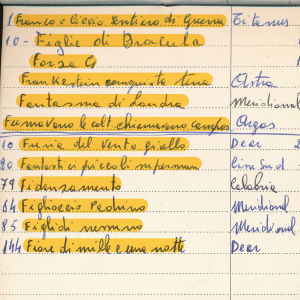 1 Franco e Ciccio Sentiero di Guerra Titanus
10 - Figlie di Dracula
Forza G
Frankestein conquista terra Astra
Fantasma di Londra Meridional
Fumavano le colt chiamavano campos Argos
10 Furia del Vento giallo Dear 2
20 Fantastici piccoli superman Cine Sud
79 Fidanzamento Calabria
64 Figlioccio Padrino Meridional
85 Figli di nessuno Meridional
144 Fiore di mille e una notte Dear